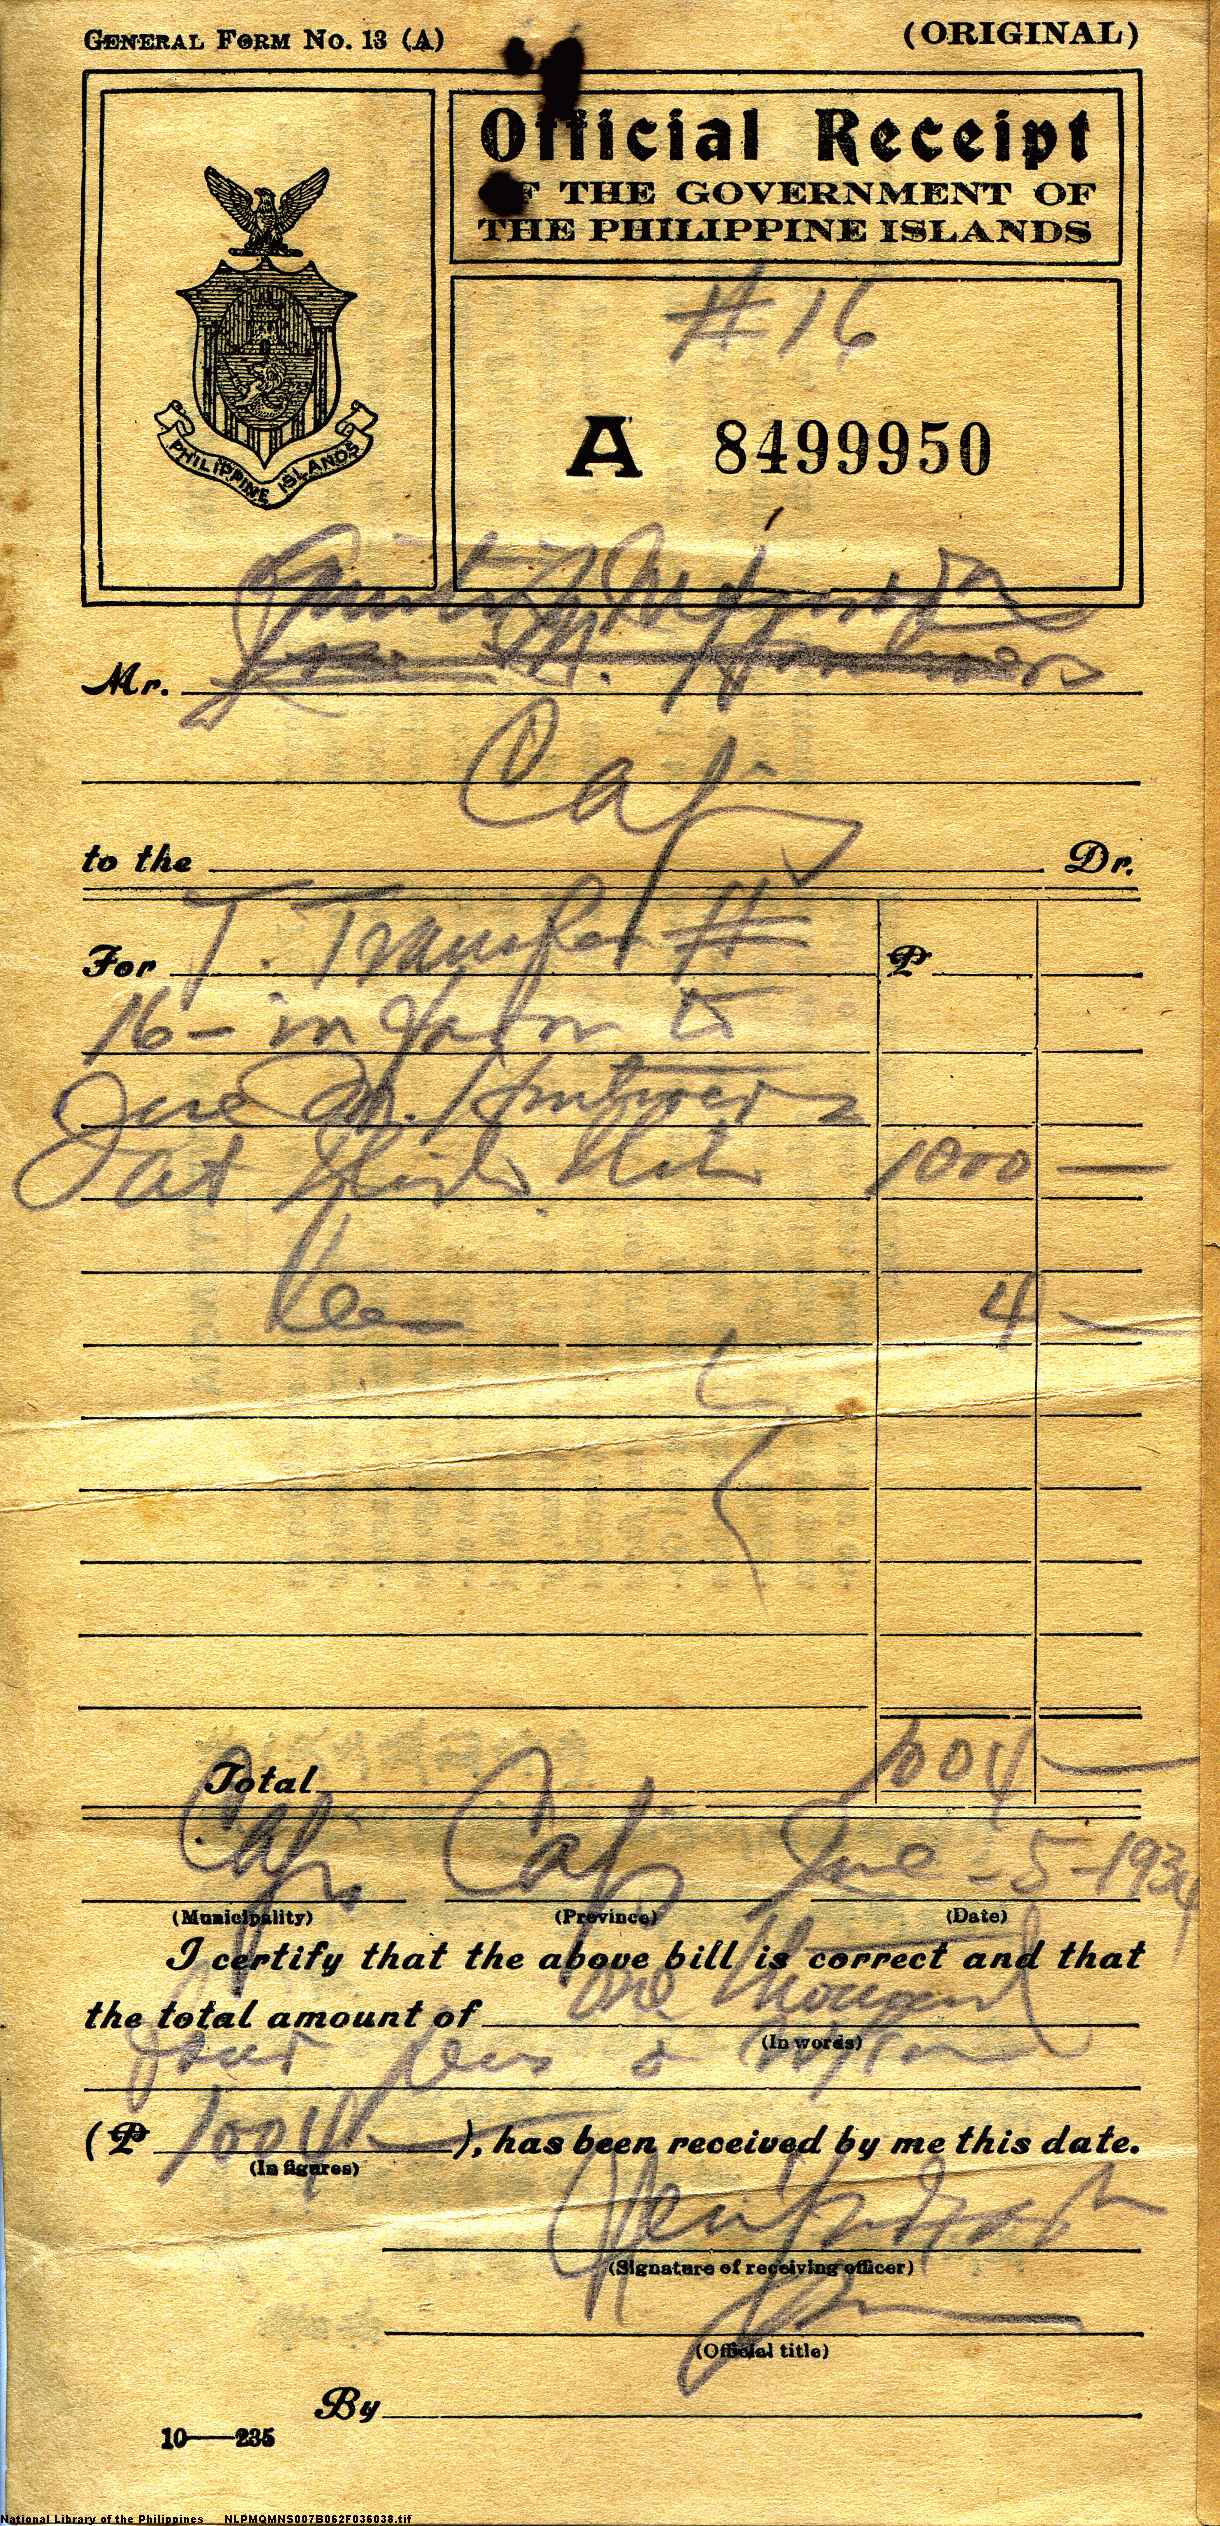 GENERAL FORM No. 13 (A)
(ORIGINAL)
Official Receipt
OF THE GOVERNMENT OF
THE PHILIPPINE ISLANDS
PHILIPPINE ISLANDS
# 16
A 8499950
Mr.
Capiz
to the Dr.
For T. Transfer # ₱
16 - in favor to
Jose M. Hontiveros
at 1000 —
Fee 4 —
Total 1004 —
Capiz Capiz June - 5 - 1934
(Municipality) (Province) (Date)
I certify that the above bill is correct and that
the total amount of one thousand
(In words)
four pesos
(₱ 1004 — ), has been received by me this date.
(In figures)
(Signature of receiving officer)
(Official title)
By
10—235
National Library of the Philippines NLPMQMNS007B062F036038.tif